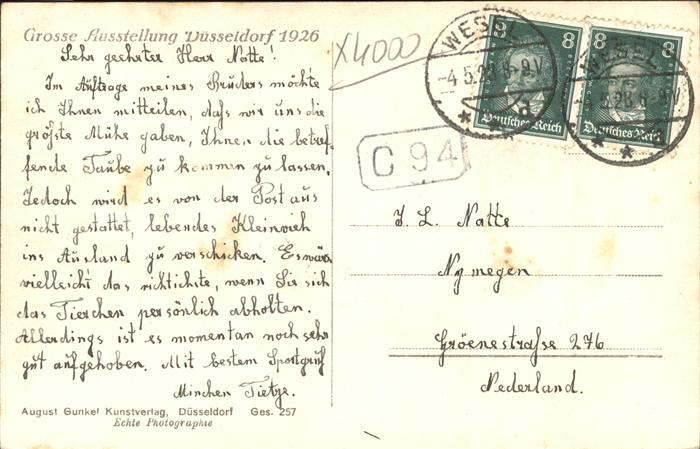 Grosse Ausstellung Düsseldorf 1926
Sehr geehrter Herr Natte!
Im Auftrage meines Bruders möchte
ich Ihnen mitteilen, daß wir uns die
größte Mühe gaben, Ihnen die betref
fende Taube zu kommen zu lassen.
Jedoch wird es von der Post aus
nicht gestattet, lebendes Kleinvieh
ins Ausland zu verschicken. Es wäre
vielleicht das richtichste, wenn Sie sich
das Tierchen persönlich abholten.
Allerdings ist es momentan noch sehr
gut aufgehoben. Mit bestem Sportgruß
Minchen Tietze.
August Gunkel Kunstverlag, Düsseldorf Ges. 257
Echte Photographie
X4000
WESEL
-4.5.28.8-9V
8 8
Deutsches Reich
WESEL
8 8
Deutsches Reich
C 94
J. L. Natte
Nymegen
Gröenestraße 276
Nederland.